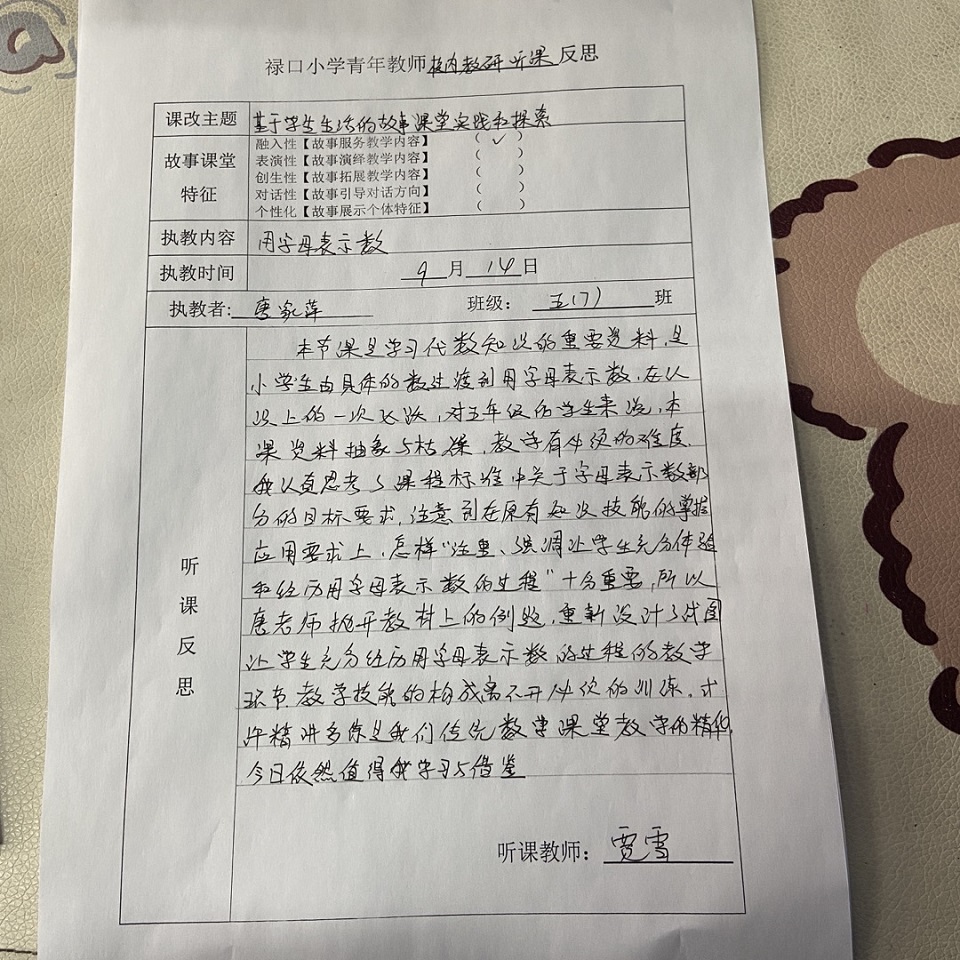 禄口小学青年教师校内教研听课反思
课改主题 基于学生生活的故事课堂实践和探索
故事课堂特征
融入性【故事服务教学内容】 （ ✓ ）
表演性【故事演绎教学内容】 （ ）
创生性【故事拓展教学内容】 （ ）
对话性【故事引导对话方向】 （ ）
个性化【故事展示个体特征】 （ ）
执教内容 用字母表示数
执教时间 9月14日
执教者: 唐家萍 班级: 五(7)班
听课反思
本节课是学习代数知识的重要资料,是
小学生由具体的数过渡到用字母表示数,在认
识上的一次飞跃,对五年级的学生来说,本
课资料抽象与枯燥,教学有必须的难度.
我认真思考了课程标准中关于字母表示数部
分的目标要求,注意到在原有知识技能的掌握
应用要求上,怎样“注重、强调让学生充分体验
和经历用字母表示数的过程”十分重要,所以
唐老师抛开教材上的例题,重新设计了
让学生充分经历用字母表示数的过程的教学
环节.教学技能的构成离不开必须的训练,
精讲多练是我们传统数学课堂教学的精华,
今日依然值得我学习与借鉴
听课教师: 雪